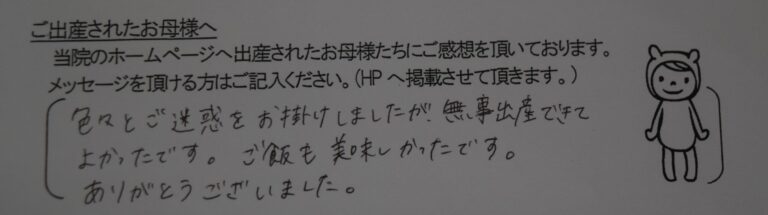 ご出産されたお母様へ
当院のホームページへ出産されたお母様たちにご感想を頂いております。
メッセージを頂ける方はご記入ください。(HPへ掲載させて頂きます。)
色々とご迷惑をお掛けしましたが、無事出産できて
よかったです。ご飯も美味しかったです。
ありがとうございました。